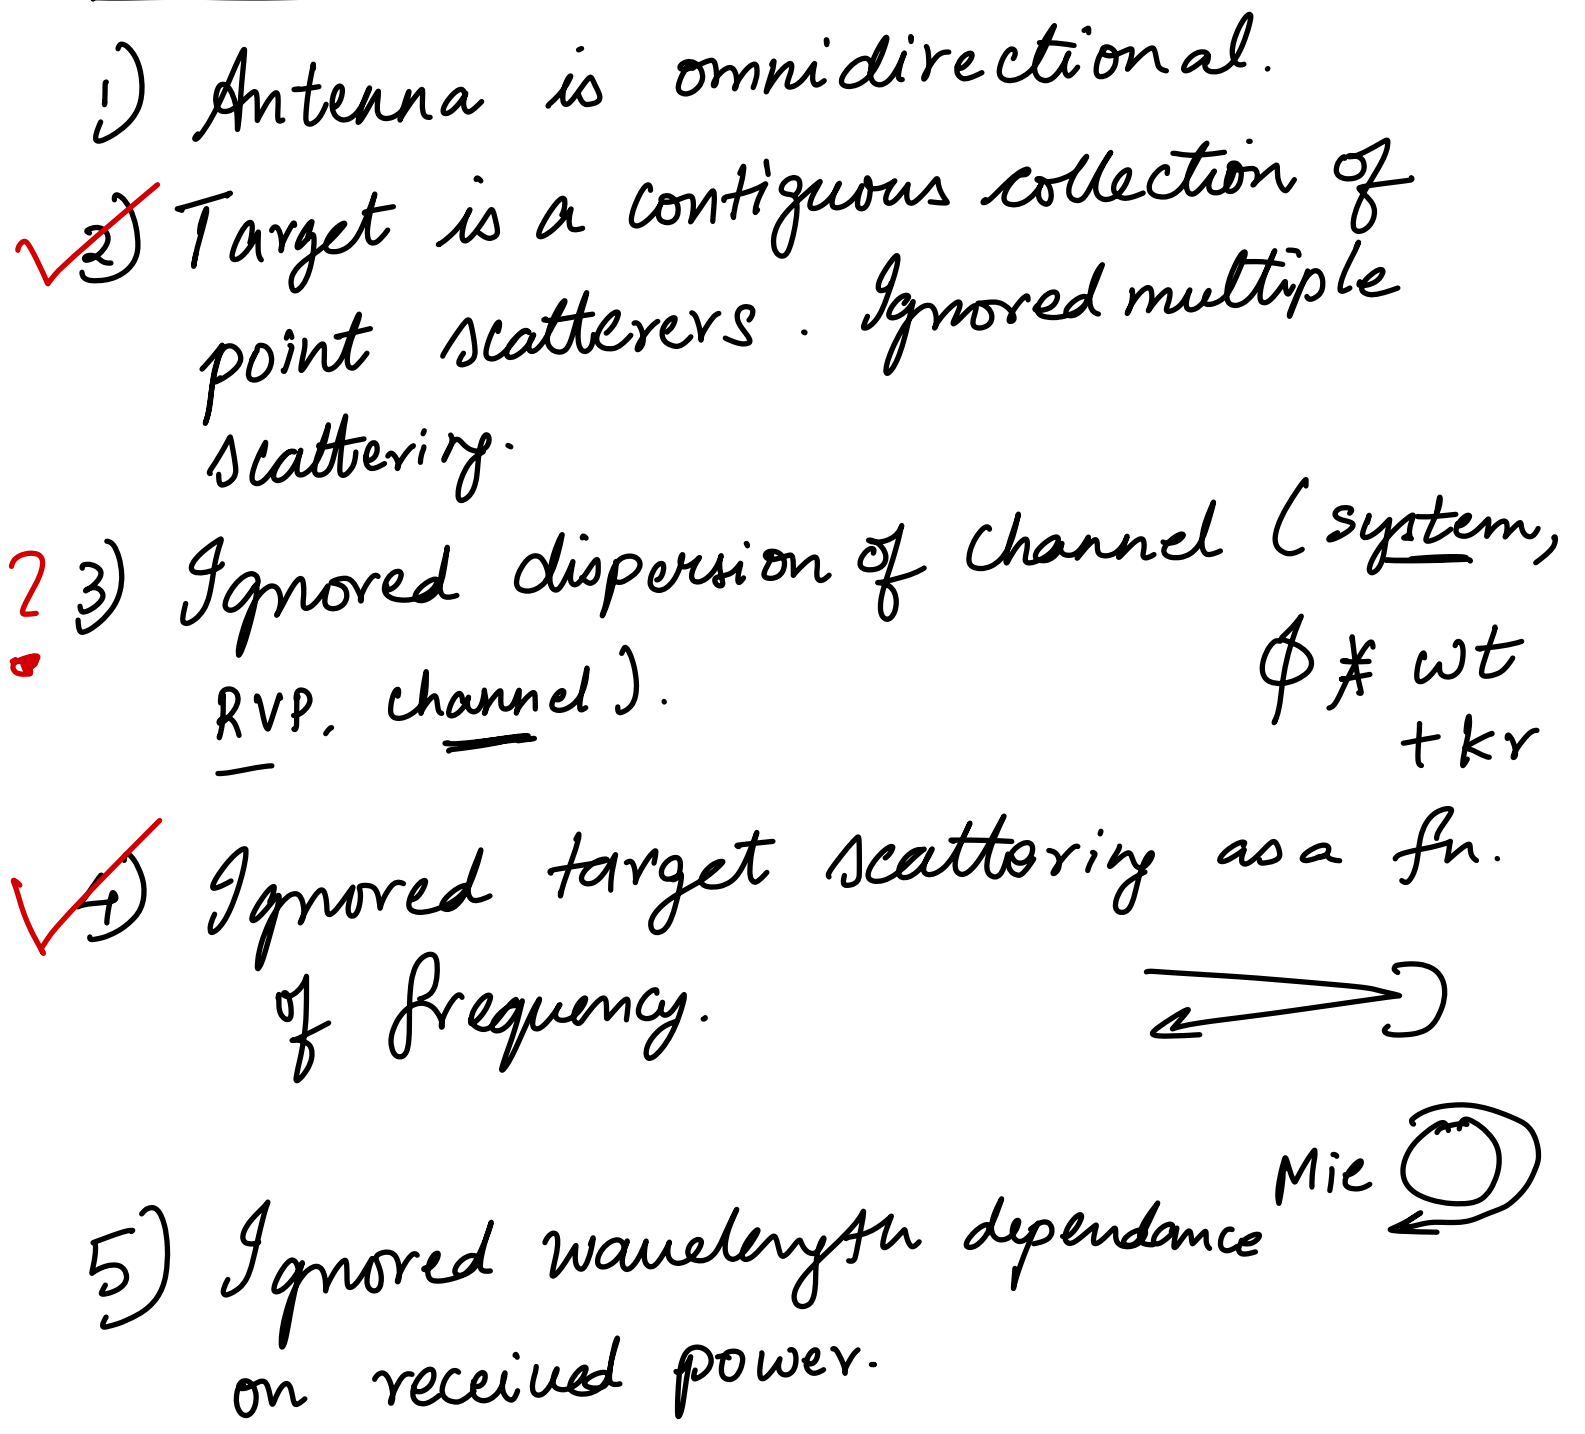 1) Antenna is omnidirectional.
2) Target is a contiguous collection of
point scatterers. Ignored multiple
scattering.
? 3) Ignored dispersion of channel (system,
RVP, channel).
ϕ ≠ wt
+ kr
4) Ignored target scattering as a fn.
of frequency.
Mie
5) Ignored wavelength dependance
on received power.